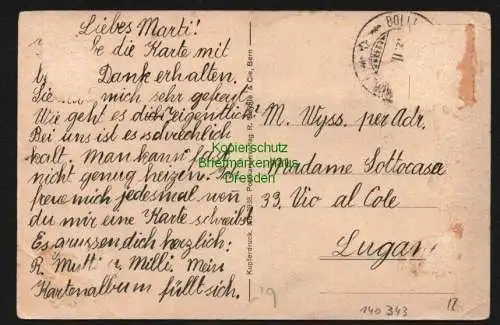 Liebes Marti!
be die Karte mit
Dank erhalten.
Sie mich sehr gefreut
Wie geht es dir eigentlich?
Bei uns ist es schrecklich
kalt. Man kann fast
nicht genug heizen. Es
freue mich jedesmal wen
du mir eine Karte schreibst
Es grüssen dich herzlich:
R. Mutti u. Milli. Mein
Kartenalbum füllt sich.
Kupferdruck.
& Cie, Bern
BOLL
M. Wyss. per Adr.
Madame Sottocasa
33. Vio al Cole
Lugan
Kopierschutz
Briefmarkenhaus
Dresden
140 343
12